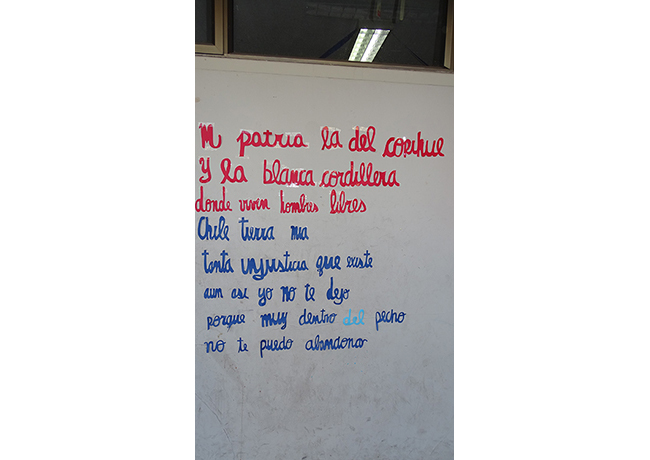 Mi patria la del coihue
Y la blanca cordillera
donde viven hombres libres
Chile tierra mia
tanta injusticia que existe
aun asi yo no te dejo
porque muy dentro del pecho
no te puedo abandonar